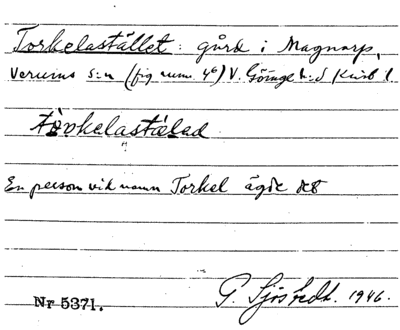 Torkelastället: gård i Magnarp,
Verums s:n (fig num. 46) V. Göinge h:d Krist l.
tòrkelastälad
En person vid namn Torkel ägde det
Nr 5371.
G. Sjöstedt. 1946.